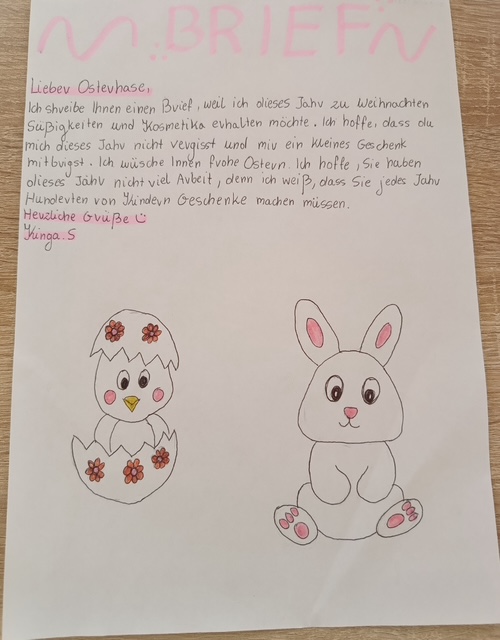 BRIEF
Lieber Osterhase,
Ich shreibe Ihnen einen Brief, weil ich dieses Jahr zu Weihnachten
Süßigkeiten und Kosmetika erhalten möchte. Ich hoffe, dass du
mich dieses Jahr nicht vergisst und mir ein kleines Geschenk
mitbrigst. Ich wüsche Innen frohe Ostern. Ich hoffe, Sie haben
dieses Jahr nicht viel Arbeit, denn ich weiß, dass Sie jedes Jahr
Hunderten von Kindern Geschenke machen müssen.
Herzliche Grüße ☺
Kinga.S